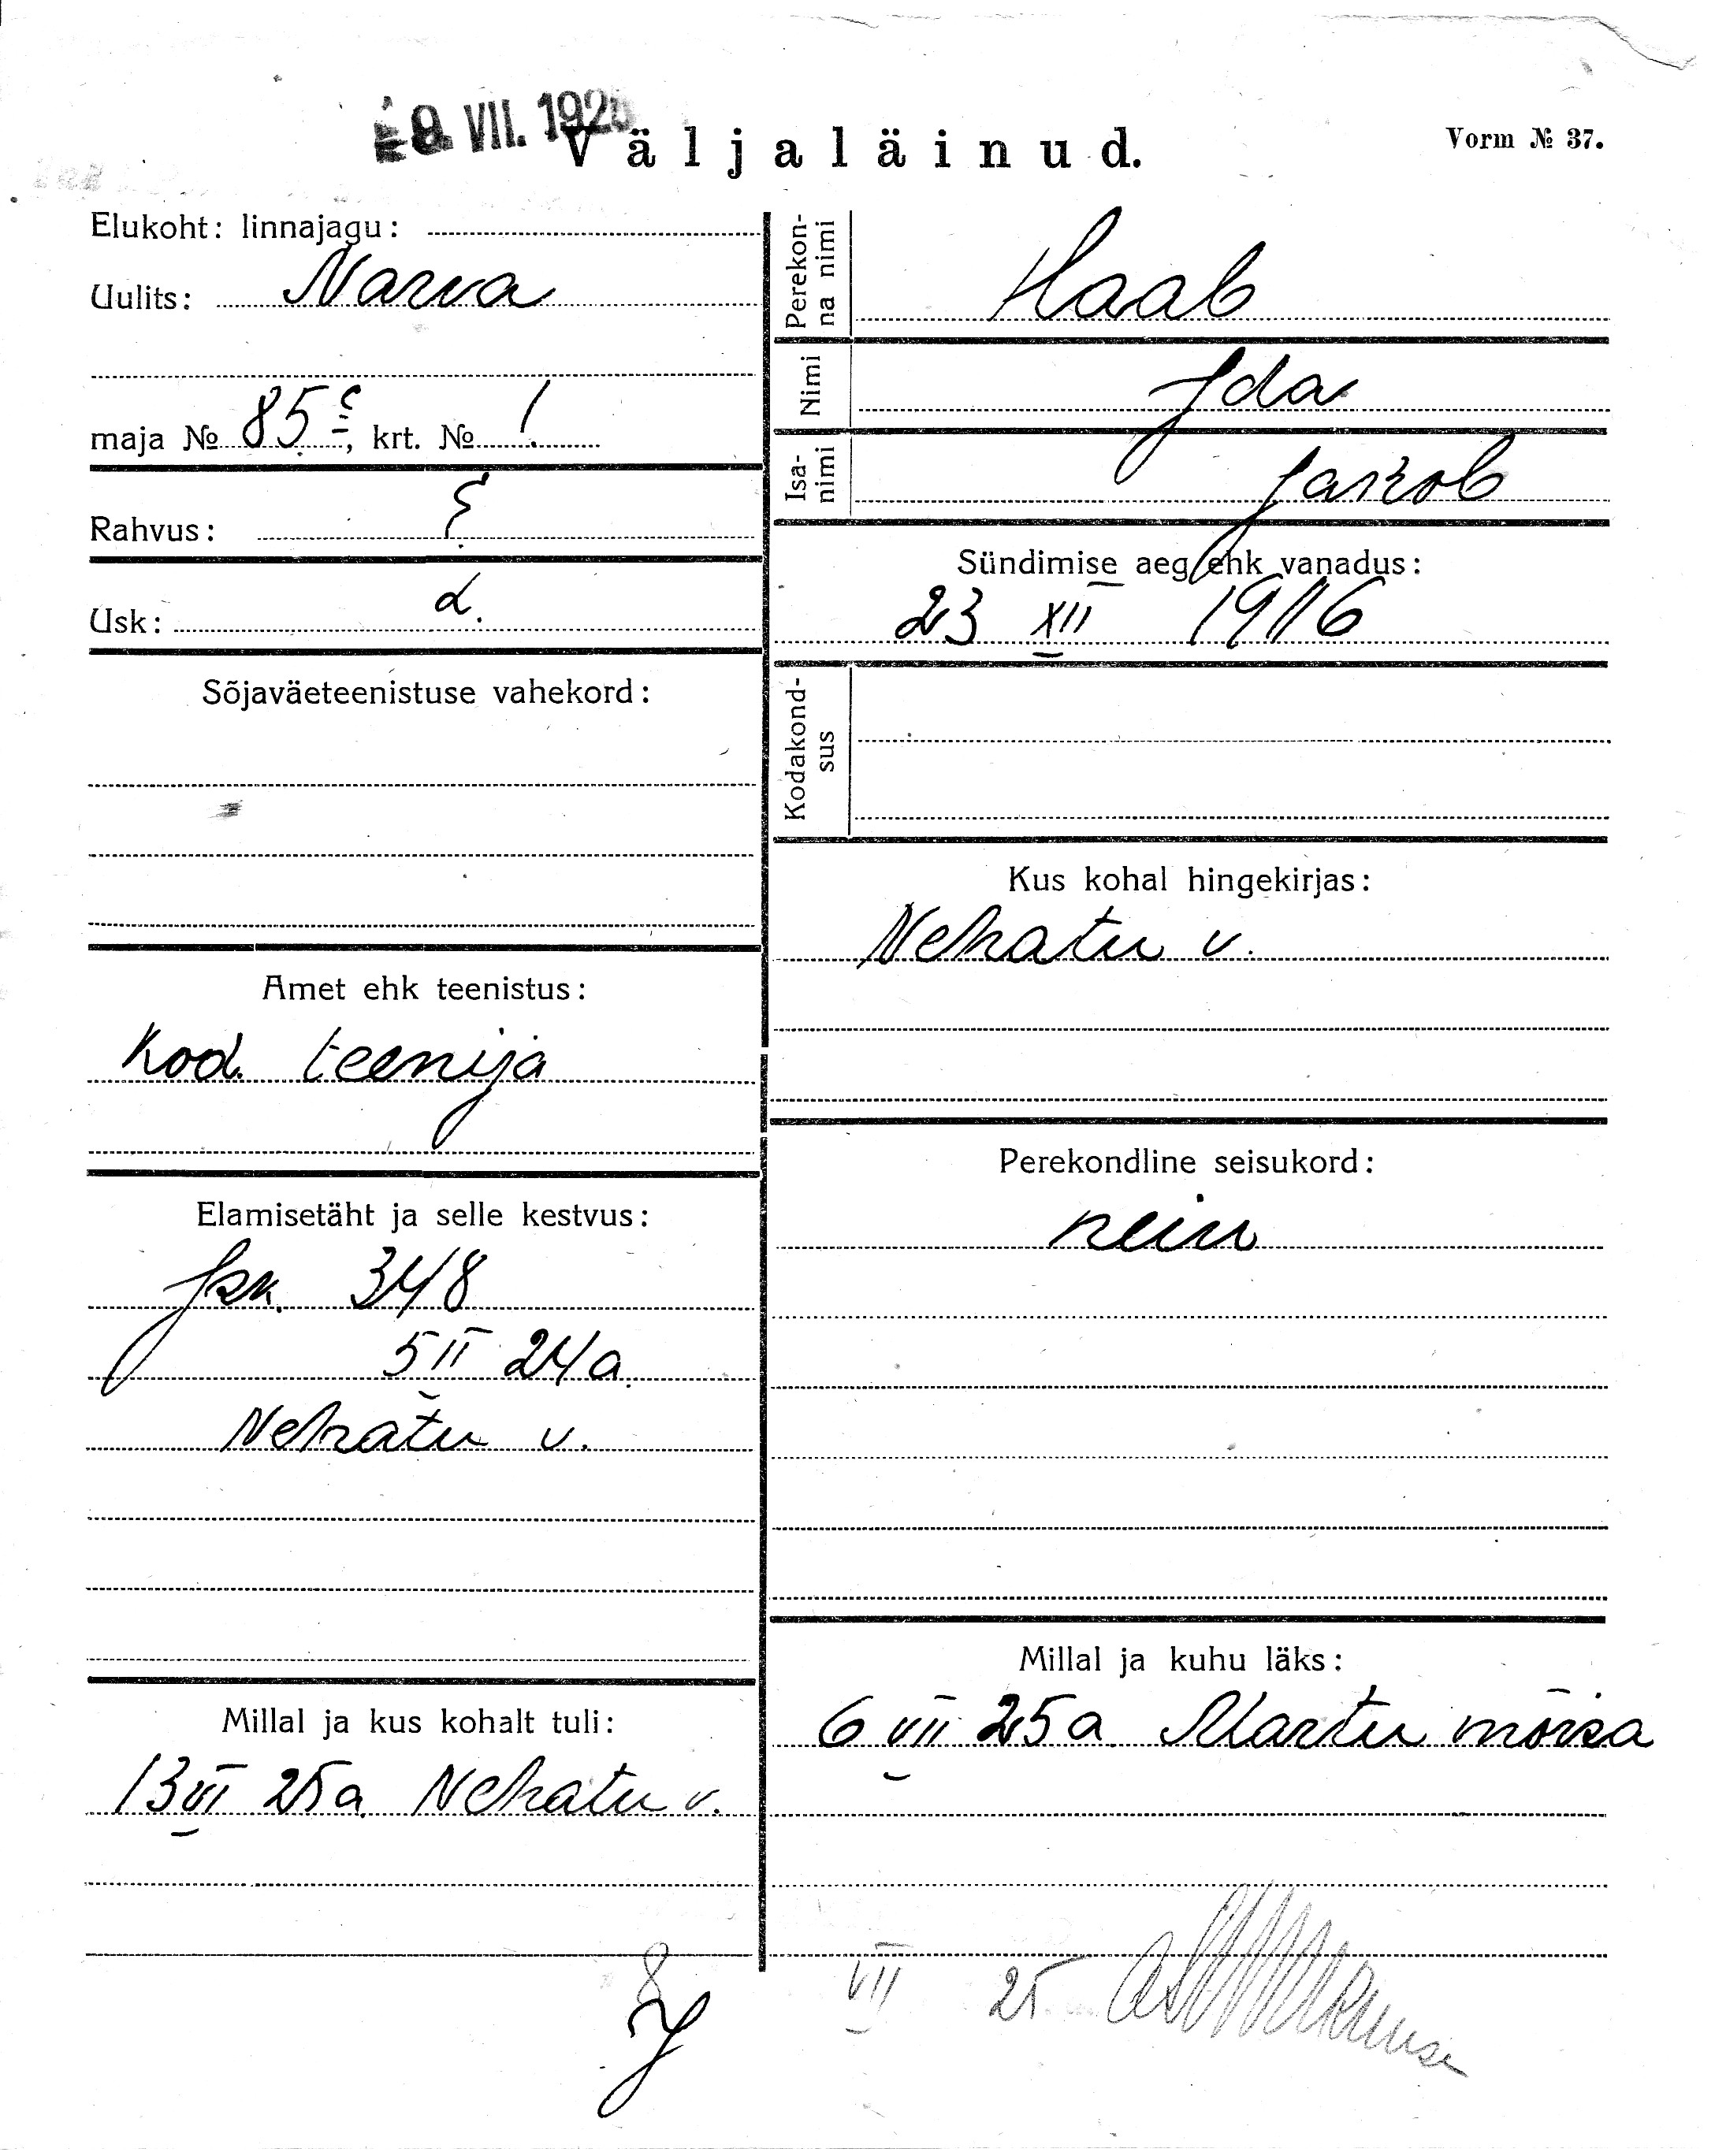 9. VII. 192
Väljaläinud.
Vorm № 37.
Elukoht: linnajagu:
Uulits: Narva
maja № 85 c, krt. № 1.
Rahvus: E.
Usk: L.
Sõjaväeteenistuse vahekord:
Amet ehk teenistus:
Kod. teenija
Elamisetäht ja selle kestvus:
Isk. 348
5 II 24 a.
Nehatu v.
Millal ja kus kohalt tuli:
13 VI 25 a Nehatu v.
Perekon-
na nimi
Haab
Nimi
Ida
Isa-
nimi
Jakob
Sündimise aeg ehk vanadus:
23 XII 1916
Kodakond-
sus
Kus kohal hingekirjas:
Nehatu v.
Perekondline seisukord:
neiu
Millal ja kuhu läks:
6 VII 25 a Martu mõisa
8 VII 25